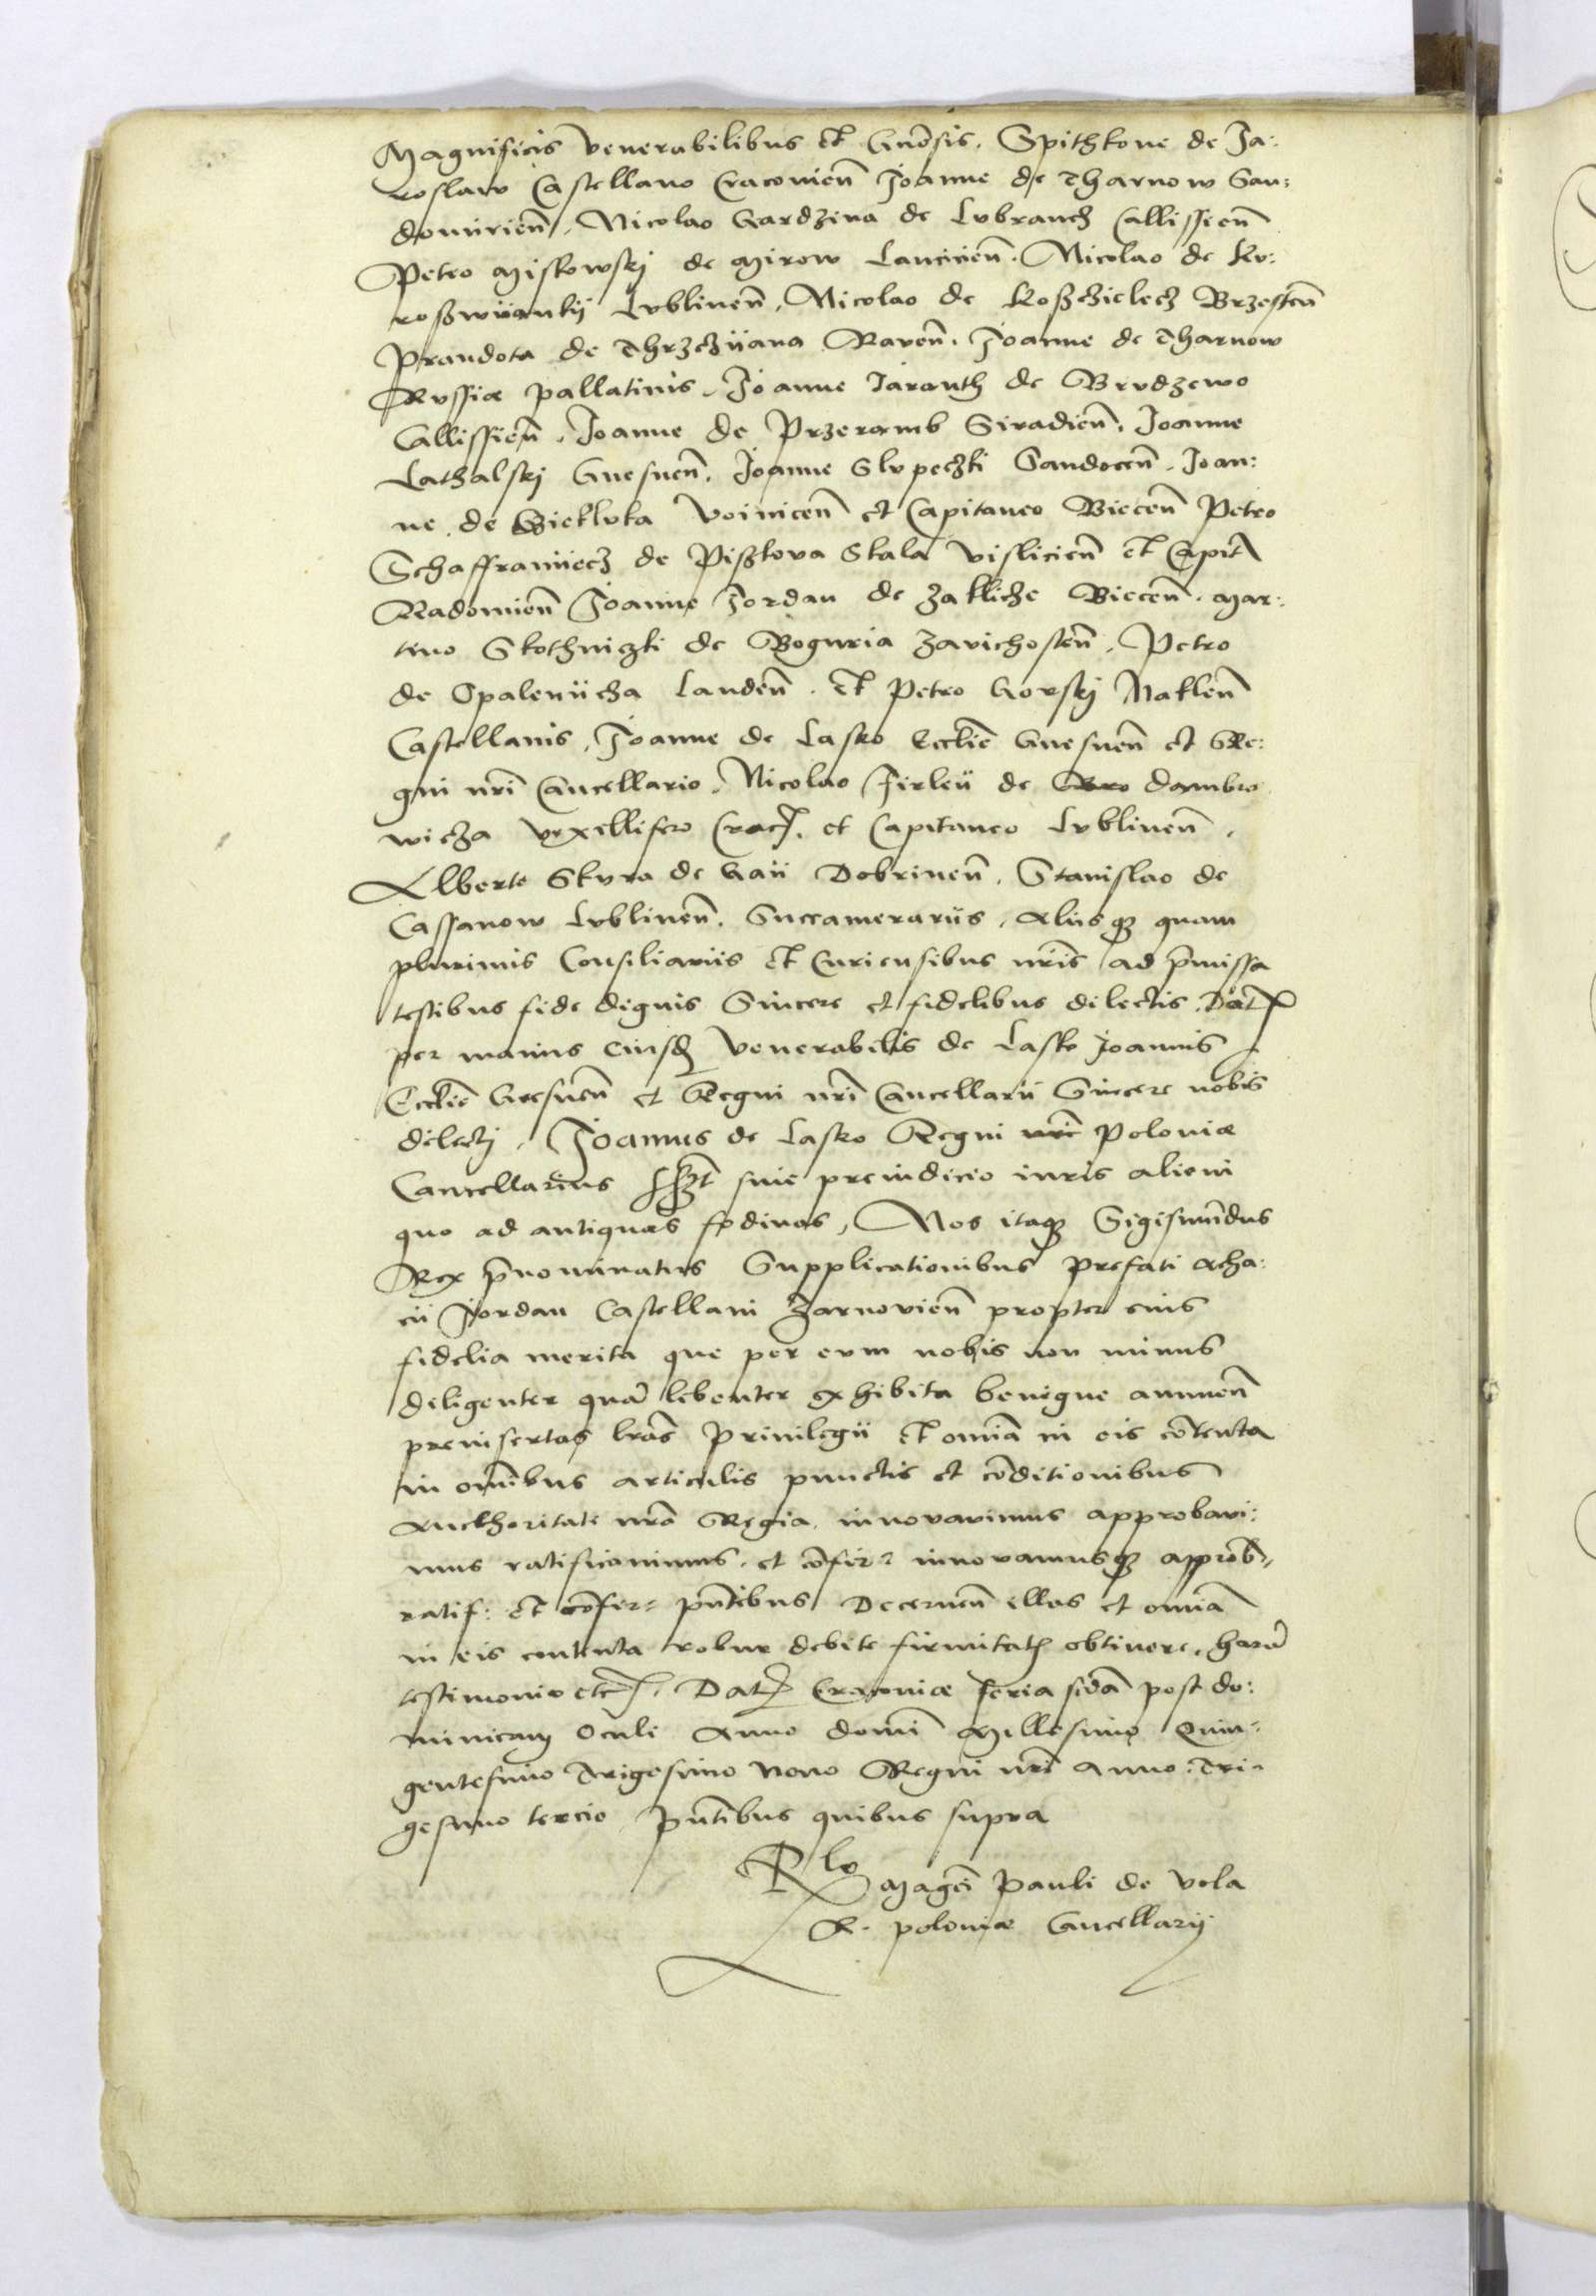 Magnificis Venerabilibus et Gnosis. Spithkone de Ja:
roslaw Castellano Cracovieñ Joanne de Tharnow San:
domirieñ, Nicolao Gardzina de Lvbrancz Callissieñ
Petro Miskowskj de Mirow Lancicieñ. Nicolao de Kv:
roßwÿankÿ Lvblineñ, Nicolao de Koßczielecz Brzesteñ
Prandota de Thrzczÿana Raveñ. Joanne de Tharnow
Rvssiæ pallatinis, Joanne Jaranth de Brvdzewo
Callissieñ, Joanne de Przeramb Siradieñ, Joanne
Lathalskj Gnesneñ. Joanne Slvpeczki Sandoceñ. Joan:
ne de Wiekloka Voiniceñ et Capitaneo Bieceñ Petro
Schaffraniecz de Pißkova Skala Visliciеñ et Capit
Radomieñ Joanne Jordan de Zakliche Bieceñ. Mar:
tino Skothniczki de Boguria Zavichosteñ, Petro
de Opalenicza Landeñ. et Petro Gorskj Nakleñ
Castellanis, Joanne de Lasko Ecclie Gnesneñ et Re:
gni nri Cancellario, Nicolao Firleÿ de Dambro
wicza Vexillifero Crac. et Capitaneo Lvblineñ,
Alberto Skvra de Gaÿ Dobrineñ, Stanislao de
Cassanow Lvblineñ. Succamerariis, Aliisqz quam
plurimis Consiliariis et Curiensibus nris ad pmissa
testibus fide dignis Sincere et fidelibus dilectis. Dat
per manus eiusd Venerabilis de Lasko Joannis
Ecclie Gnesneñ et Regni nri Cancellarii Sincere nobis
dilectj, Joannes de Lasko Regni nri Poloniæ
Cancellarius sszt sine preiudicio iuris alieni
quo ad antiquas fodinas, Nos itaqz Sigismundus
Rex pnominatus Supplicationibus prefati Acha:
cii Jordan Castellani Zarnovieñ propter eius
fidelia merita que per evm nobis non minus
diligenter qua libenter exhibita benigne annueñ
preinsertas lras Privilegii et omia in eis contenta
in omibus articulis punctis et conditionibus
Aucthoritate nra Regia innovavimus approbavi:
mus ratificavimus. et confir: innovamusqz approb,
ratif: et confir: pntibus Decerneñ illas et omia
in eis contenta robur debite firmitatis obtinere. haru
testimonio etc. Dat Cracoviæ feria scda post do:
minicam Oculi Anno domi Millesimo Quin:
gentesimo Trigesimo Nono Regni nri Anno Tri:
gesimo tercio pntibus quibus supra
Rlo Magci Pauli de Vola
R. poloniæ Cancellarij